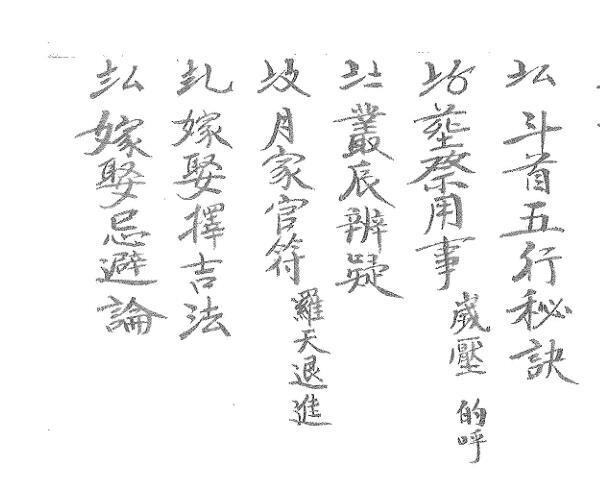 斗首五行秘訣
塟祭用事 歲壓 的呼
叢辰辨疑
月家官符 羅天退進
嫁娶擇吉法
嫁娶忌避論